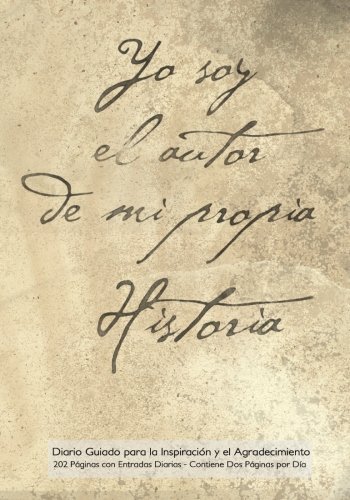 Yo soy
el autor
de mi propia
Historia
Diario Guiado para la Inspiración y el Agradecimiento
202 Páginas con Entradas Diarias - Contiene Dos Páginas por Día